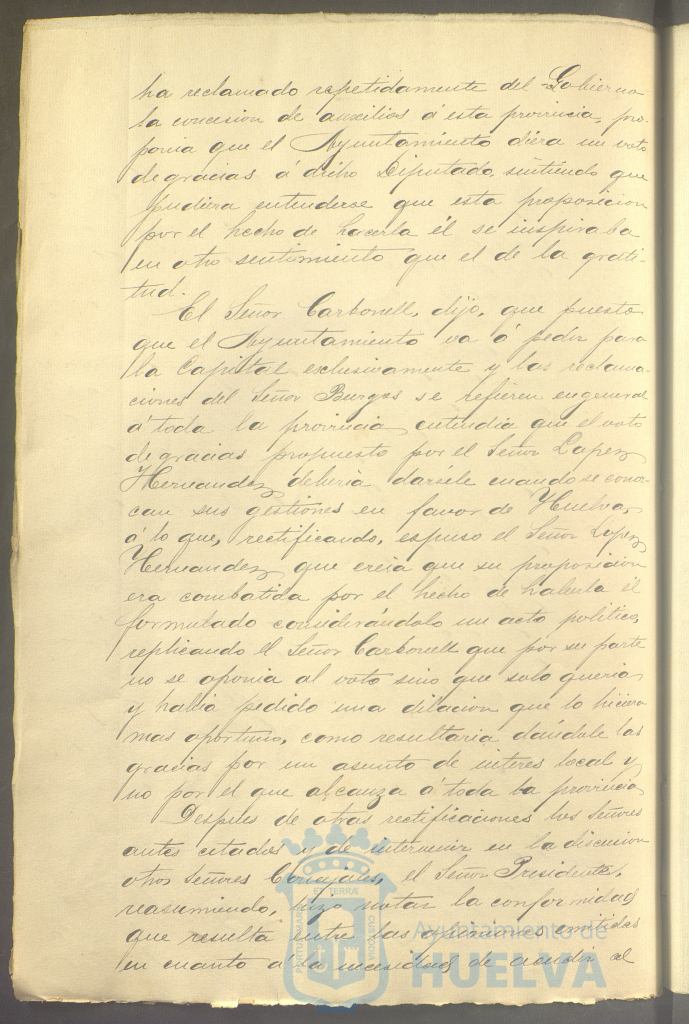 ha reclamado repetidamente del Gobierno
la concesion de auxilios á esta provincia, pro-
ponia que el Ayuntamiento diera un voto
de gracias á dicho Diputado, sintiendo que
pudiera entenderse que esta proposicion
por el hecho de hacerla él se inspiraba
en otro sentimiento que el de la grati-
tud.
El Señor Carbonell, dijo, que puesto
que el Ayuntamiento va á pedir para
la Capital esclusivamente y las reclama-
ciones del Señor Burgos se refieren en general
á toda la provincia entendia que el voto
de gracias propuesto por el Señor Lopez
Hernandez deberia darsele cuando se conoz-
can sus gestiones en favor de Huelva,
á lo que, rectificando, espuso el Señor Lopez
Hernandez que creia que su proposicion
era combatida por el hecho de haberla él
formulado considerándolo un acto politico,
replicando el Señor Carbonell que por su parte
no se oponia al voto sino que solo queria
y habia pedido una dilacion que lo hiciera
mas oportuno, como resultaria dándole las
gracias por un asunto de interes local y
no por el que alcanza á toda la provincia
Despues de otras rectificaciones los Señores
antes citados y de intervenir en la discusion
otros Señores Concejales, el Señor Presidente,
reasumiendo, hizo notar la conformidad
que resulta entre las opiniones emitidas
en cuanto á la necesidad de acudir al
PORTUS MARIS ET TERRÆ CUSTODIA
Ayuntamiento de
HUELVA